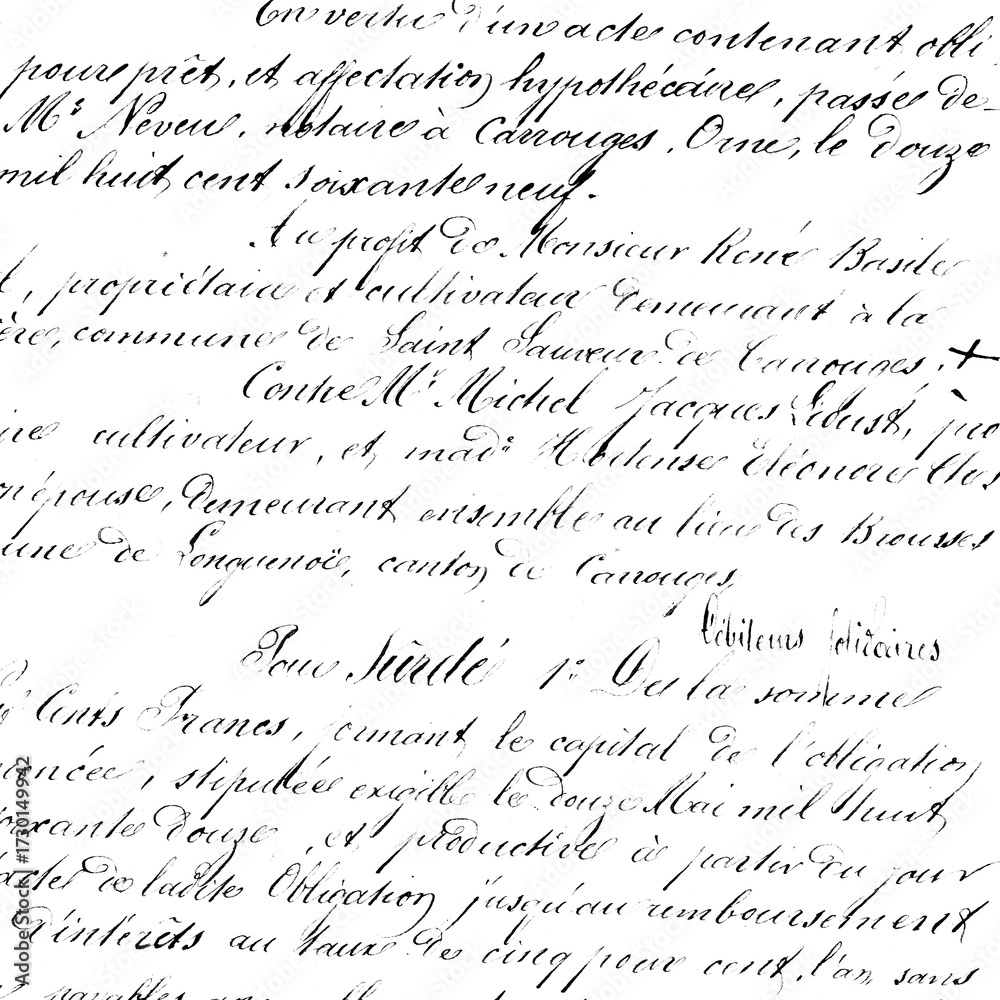 En vertu d'un acte contenant obli
pour prêt, et affectation hypothécaire, passé de-
Mr Neveu, notaire à Carrouges, Orne, le douze
mil huit cent soixante neuf.
Au profit de Monsieur René Basile
t, propriétaire et cultivateur demeurant à la
ère, commune de Saint Sauveur de Carrouges, +
Contre Mr Michel Jacques Lioust, pro
ire cultivateur, et made Hortense Eléonore
on épouse, demeurant ensemble au lieu des Brousses
une de Longuenoë, canton de Carrouges,
Débiteurs solidaires
Pour Sûreté 1º De la somme
Cents Francs, formant le capital de l'obligation
noncée, stipulée exigible le douze Mai mil huit
soixante douze, et productive à partir du jour
acte de ladite Obligation jusqu'au remboursement
d'intérêts au taux de cinq pour cent l'an, sans
payables
Adobe Stock | #1730149942
Adobe Stock